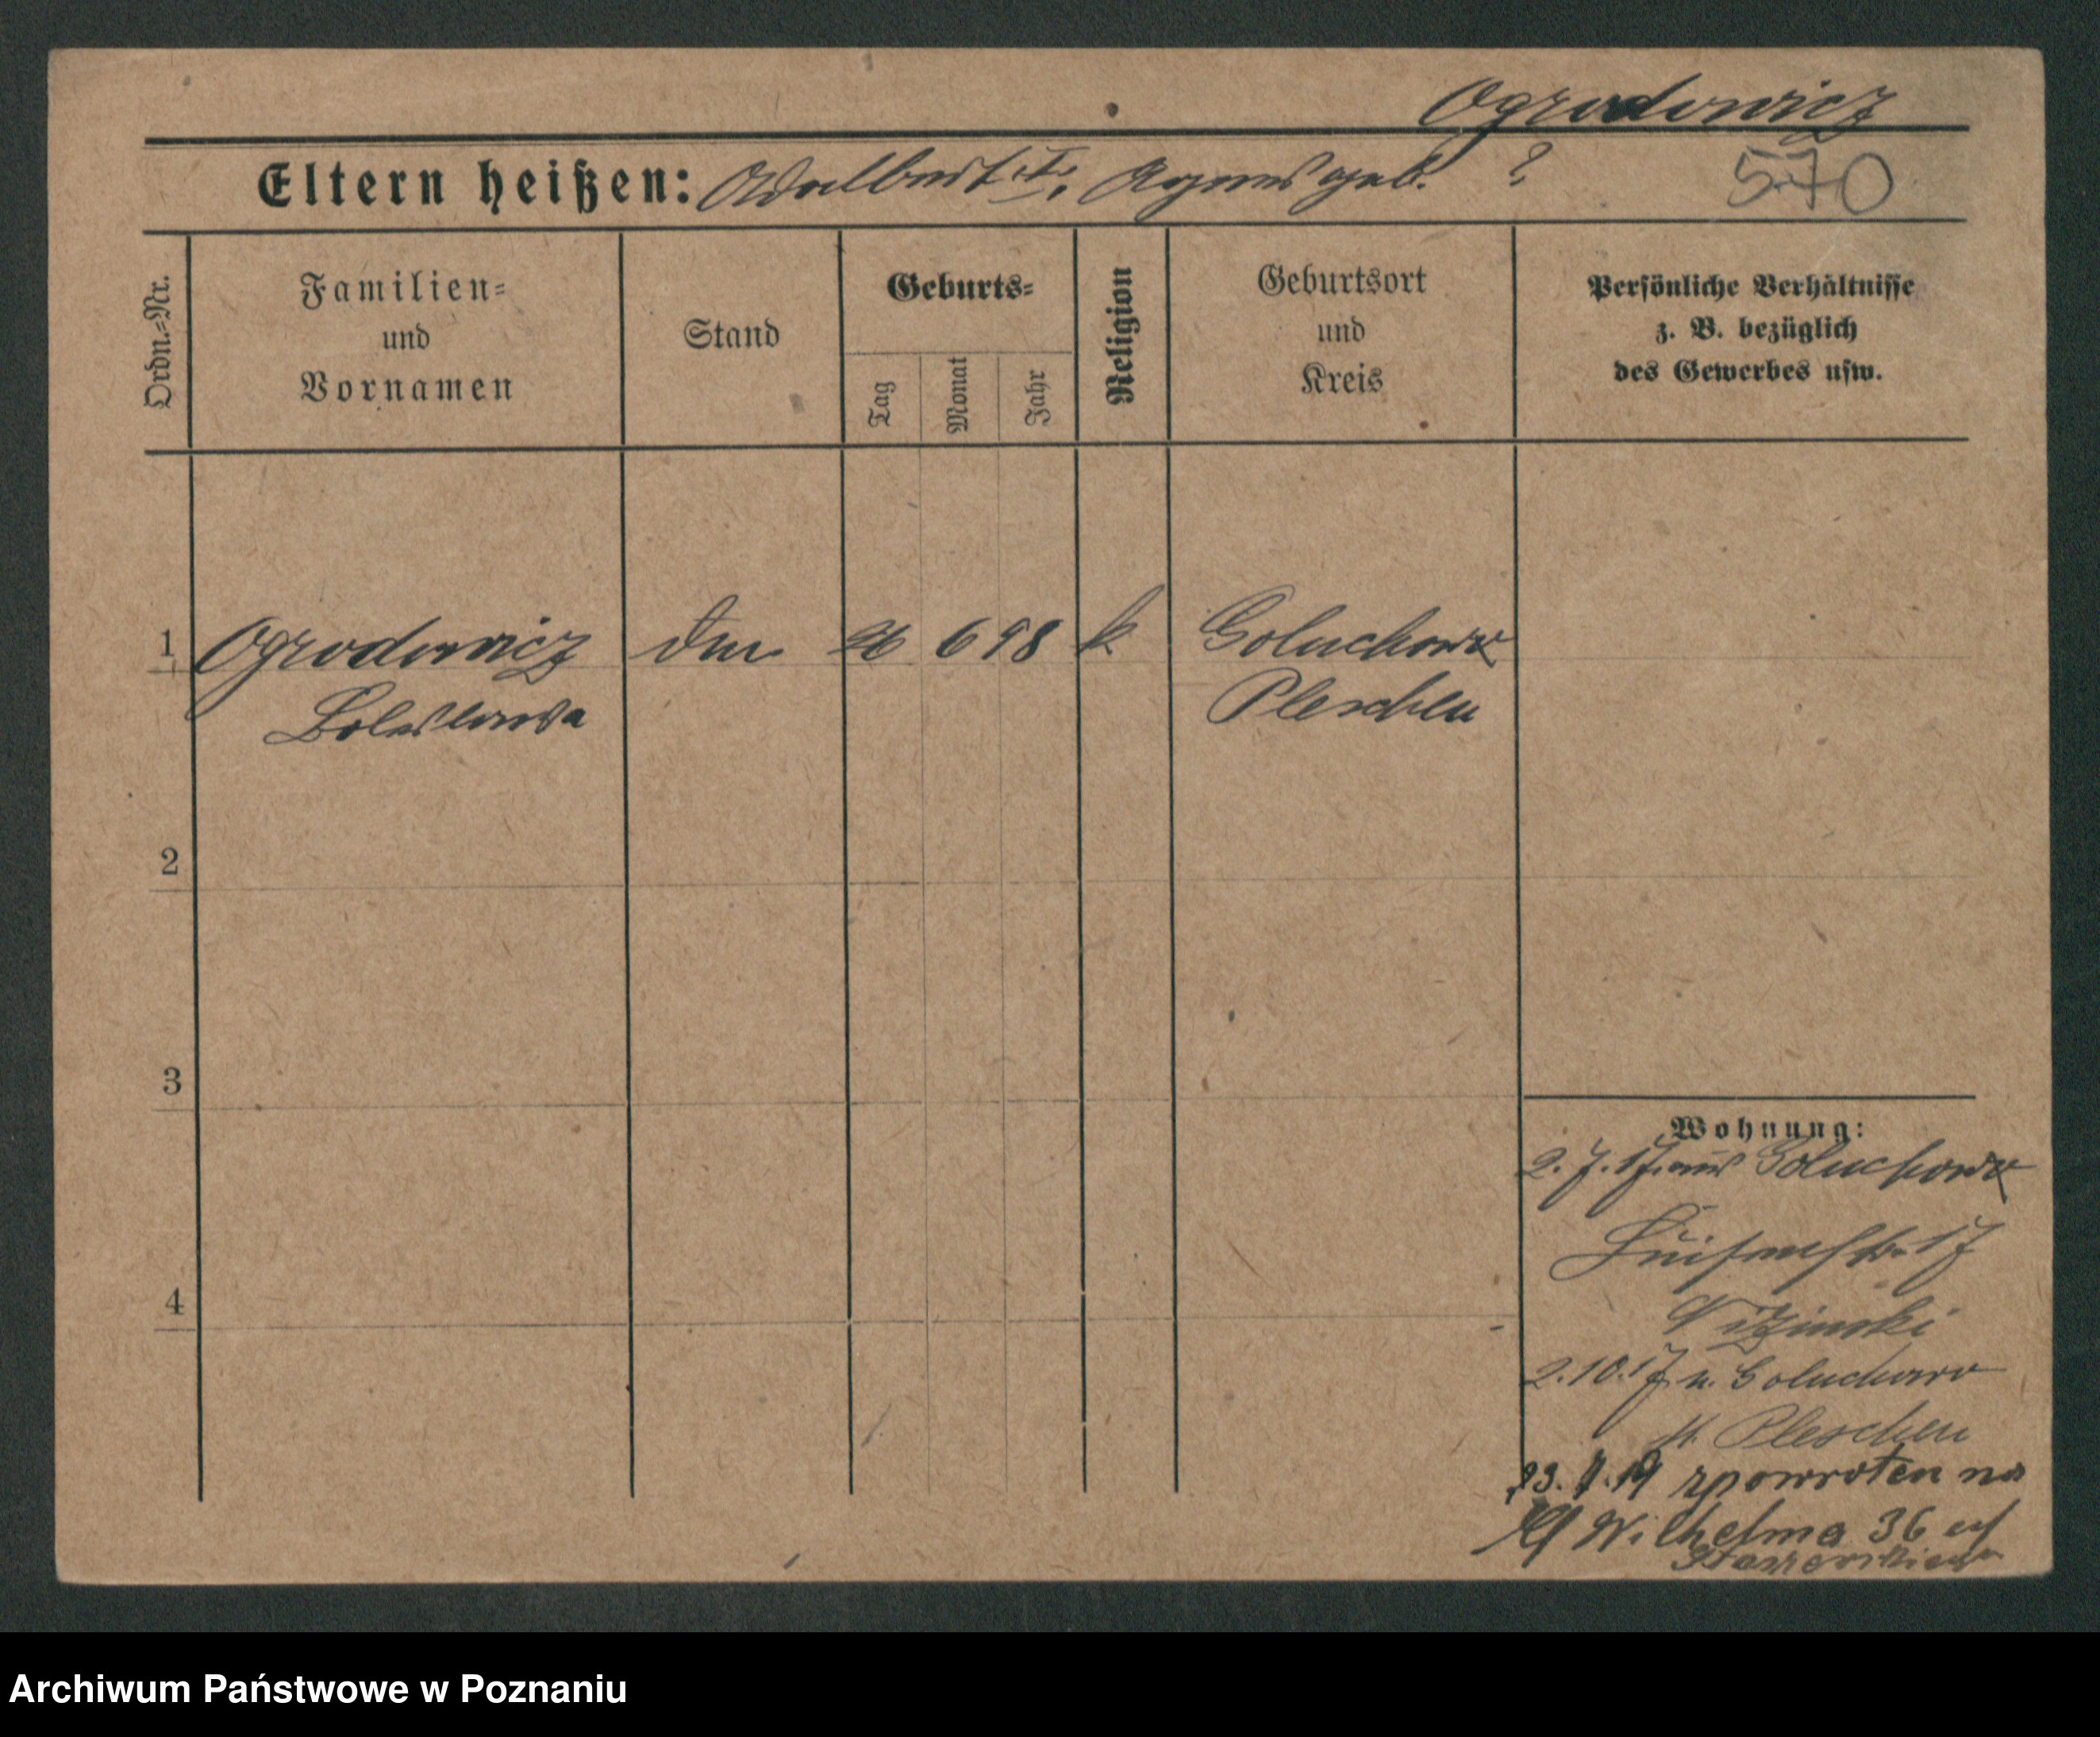 Ogrodowicz
Eltern heißen: Adalbert †, Agnes geb. ?
570
Ordn.=Nr.
Familien=
und
Vornamen
Stand
Geburts=
Tag
Monat
Jahr
Religion
Geburtsort
und
Kreis
Persönliche Verhältnisse
z. B. bezüglich
des Gewerbes usw.
1 Ogrodowicz 26 6 98 k Goluchow
Boleslawa Pleschen
2
3
4
Wohnung:
2.7.17 aus Goluchow
Luisenstr. 17
2.10.17 n. Goluchow
Pleschen
23.7.19 zpowroten na
Wilhelma 36
Archiwum Państwowe w Poznaniu